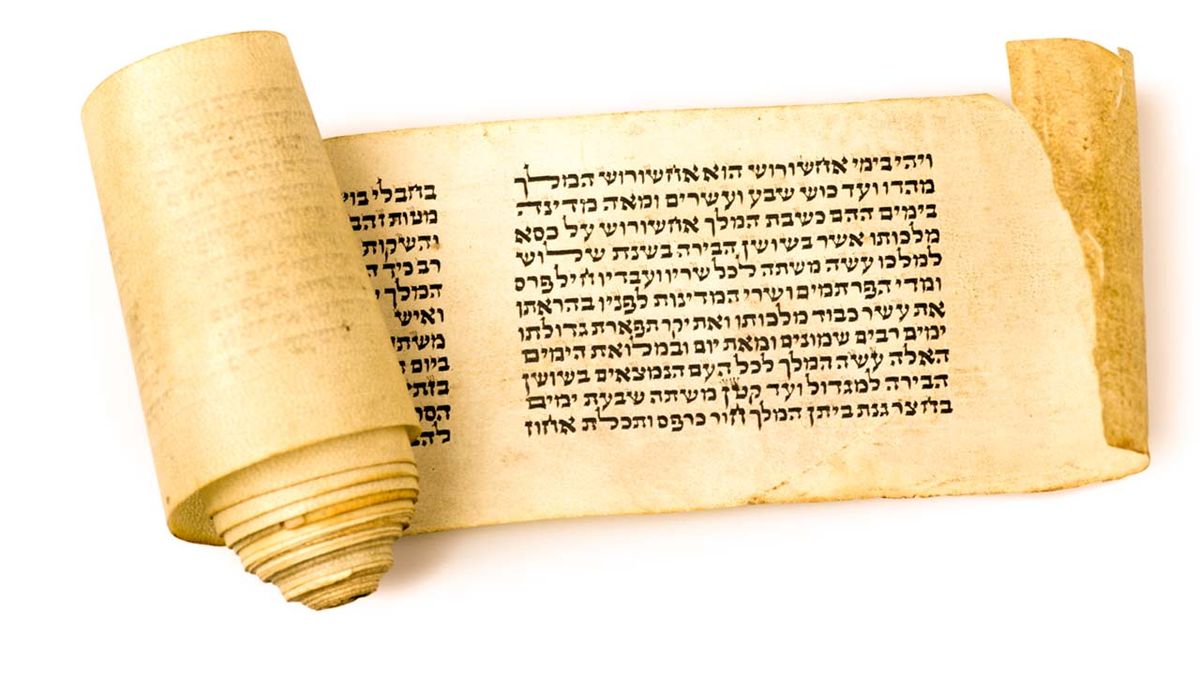 ויהי בימי אחשורוש הוא אחשורוש המלך
מהדו ועד כוש שבע ועשרים ומאה מדינה
בימים ההם כשבת המלך אחשורוש על כסא
מלכותו אשר בשושן הבירה בשנת שלוש
למלכו עשה משתה לכל שריו ועבדיו חיל פרס
ומדי הפרתמים ושרי המדינות לפניו בהראתו
את עשר כבוד מלכותו ואת יקר תפארת גדולתו
ימים רבים שמונים ומאת יום ובמלואת הימים
האלה עשה המלך לכל העם הנמצאים בשושן
הבירה למגדול ועד קטן משתה שבעת ימים
בחצר גנת ביתן המלך חור כרפס ותכלת אחוז
בחבלי בוץ
מטות זהב
והשקות
רב כיד
המלך
ואיש
משתה
ביום
בזתא